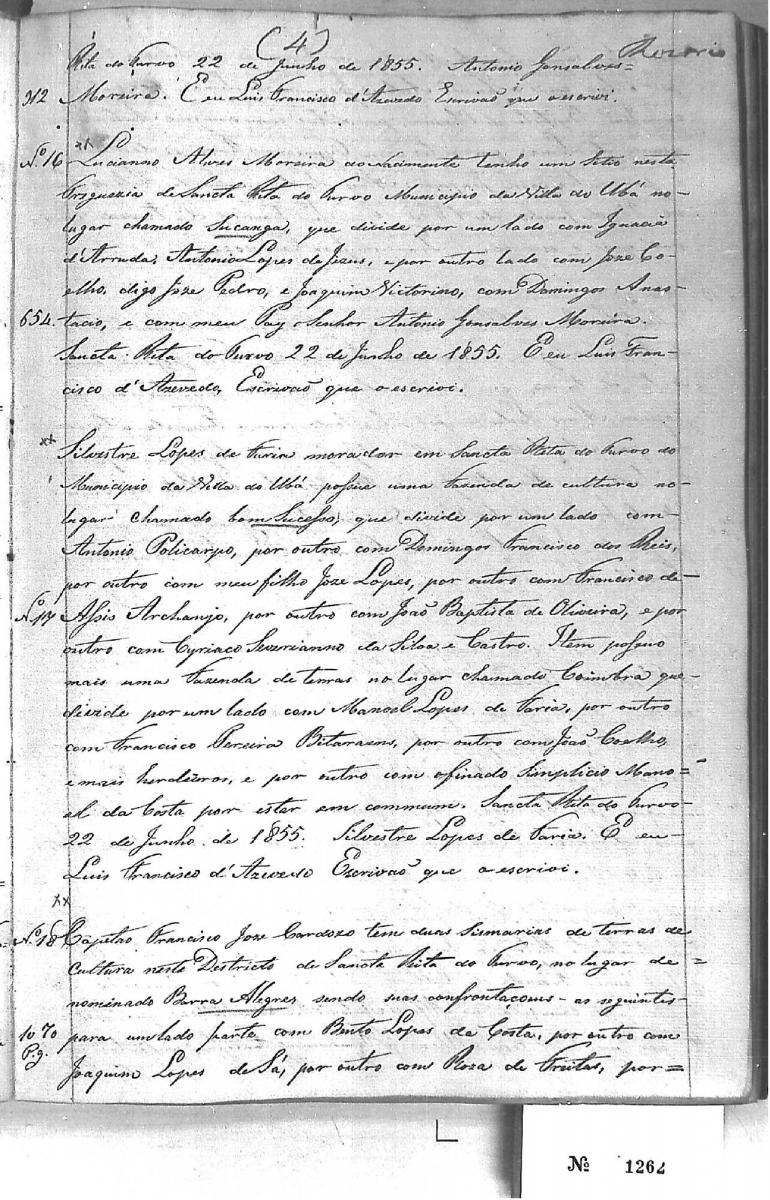 (4)
Rita do Turvo 22 de Junho de 1855. Antonio Gonsalves=
312 Moreira. E eu Luis Francisco d'Azevedo Escrivaõ que o escrivi.
N.º 16 Lucianno Alvres Moreira do Nacimente tenho um Sitio nesta
Freguezia de Sancta Rita do Turvo Municipio da Villa do Ubá no-
lugar chamado Sucanga, que divide por um lado com Ignacia
d'Arruda, Antonio Lopes de Jezus, e por outro lado com Joze Co-
elho, digo Joze Pedro, e Joaquim Victorino, com Domingos Anas-
654. tacio, e com meu Pay o Senhor Antonio Gonsalves Moreira.
Sancta Rita do Turvo 22 de Junho de 1855. E eu Luis Fran-
cisco d'Azevedo, Escrivaõ que o escrivi.
Silvestre Lopes de Faria morador em Sancta Rita do Turvo do
Municipio da Villa do Ubá possue uma Fazenda de cultura no-
lugar chamado bom Sucesso, que divide por um lado com-
Antonio Policarpo, por outro com Domingos Francisco dos Reis,
por outro com meu filho Joze Lopes, por outro com Francisco de-
N.º 17 Assis Archanjo, por outro com Joaõ Baptista de Oliveira, e por
outro com Cyriaco Severianno da Silva e Castro. Item possuo
mais uma Fazenda de terras no lugar chamado Coimbra que-
divide por um lado com Manoel Lopes de Faria, por outro
com Francisco Pereira, por outro com Joaõ Coelho,
e mais herdeiros, e por outro com o finado Simplicio Mano=
el da Costa por estar em commum. Sancta Rita do Turvo-
22 de Junho de 1855. Silvestre Lopes de Faria. E eu-
Luis Francisco d'Azevedo Escrivaõ que o escrivi.
N.º 18 Capitaõ Francisco Joze Cardozo tem duas Sismarias de terras de
Cultura neste Districto de Sancta Rita do Turvo, no lugar de=
nominado Barra Alegres sendo suas confrontacoens- as seguintes-
1070 para um lado parte com Bento Lopes da Costa, por outro com
P.g. Joaquim Lopes de Sá, por outro com Roza de Freitas, por=
Nº 1262